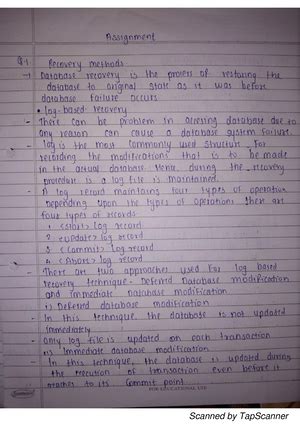 Assignment
Q.1 Recovery methods
→ Database recovery is the process of restoring the
database to original state as it was before
database failure occurs
• log-based recovery
- There can be problem in accessing database due to
any reason can cause a database system failure.
- log is the most commonly used structure for
recording the modifications that is to be made
in the actual database. Hence, during the recovery
procedure is a log file is maintained.
- A log record maintains four types of operation
depending upon the types of operations there are
four types of records
1 <start> log record
2 <update> log record
3 <commit> log record
4 <Abort> log record
- There are two approaches used for log based
recovery technique - Deferred Database modification
and Immediate Database modification
i> Deferred database modification
- In this technique, the database is not updated
immediately
- Only log file is updated on each transaction
ii> Immediate database modification.
- In this technique, the database is updated during
the execution of transaction even before it
reaches to its commit point
FOR EDUCATIONAL USE
Scanned by TapScanner